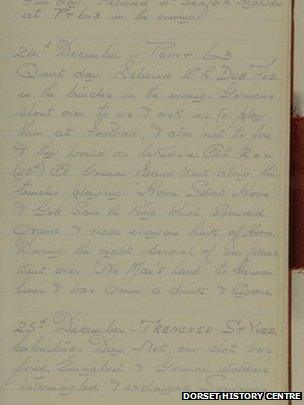 Fine day. Relieved 2nd Seaforth Highldrs
at Pt 63 in the evening.
24th December - Point 63
Quiet day. Relieved 2nd R. Dub. Fus.
in the trenches in the evening. Germans
shout over to us & ask us to play
them at football, & also not to fire
& they would do likewise. At 2am
(25th) A German Band went along their
trenches playing "Home Sweet Home"
& God Save the King which sounded
grand & made everyone think of Home.
During the night several of our fellows
went over "No Man's Land" to German
lines & was given a drink & Cigars.
25th December - Trenches - St Yves.
Christmas Day. Not one shot was
fired. English & German soldiers
intermingled & exchanged souvenirs.
DORSET HISTORY CENTRE